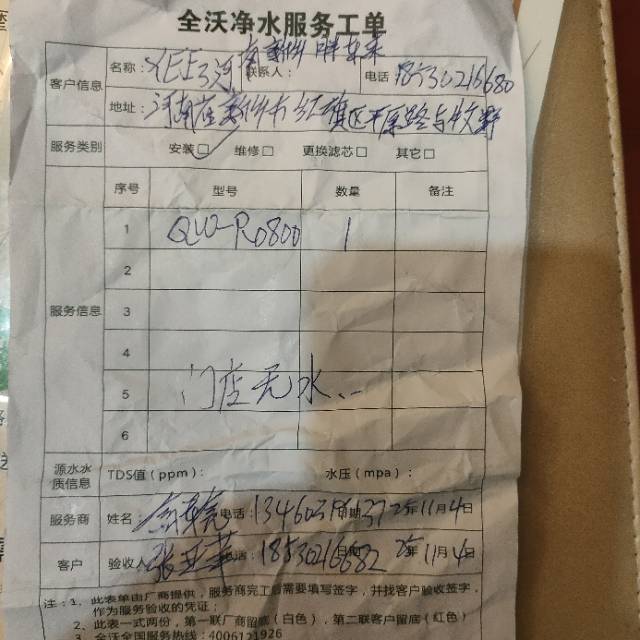 全沃净水服务工单
客户信息
名称：
联系人：
电话 18530216680
地址：河南省新乡市红旗区平原路与
服务类别 安装☑ 维修□ 更换滤芯□ 其它□
序号 型号 数量 备注
服务信息
1 QW-RO800 1
2
3
4
5 门店无水
6
源水水质信息 TDS值（ppm）： 水压（mpa）：
服务商 姓名： 电话： 日期 11月4日
客户 验收人 电话：18530216682 日期 11月4日
注：1、此表单由厂商提供，服务商完工后需要填写签字，并找客户验收签字，
作为服务验收的凭证；
2、此表一式两份，第一联厂商留底（白色），第二联客户留底（红色）
3、全沃全国服务热线：4006121926